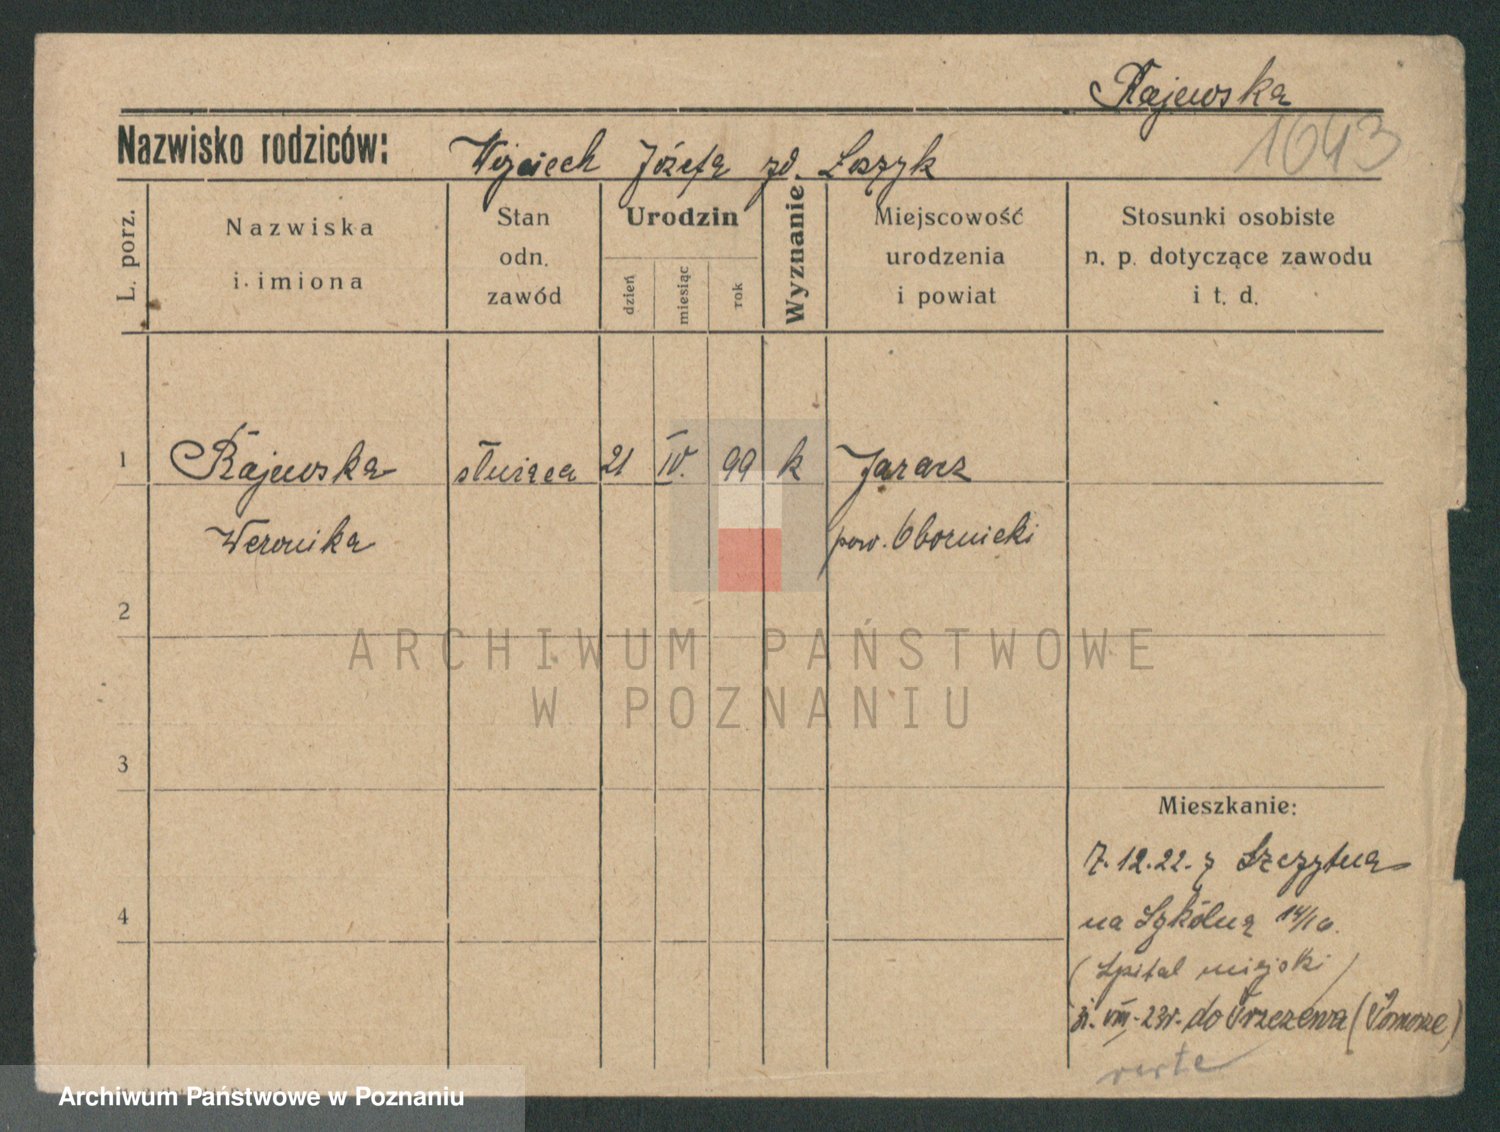 Rajewska
1043
Nazwisko rodziców: Wojciech Józefa zd. Loszyk
L. porz.
Nazwiska i imiona
Stan odn. zawód
Urodzin
dzień
miesiąc
rok
Wyznanie
Miejscowość urodzenia i powiat
Stosunki osobiste n. p. dotyczące zawodu i t. d.
1 Rajewska służąca 21 IV. 99 k Jaracz
Weronika pow. Obornicki
2
3
4
ARCHIWUM PAŃSTWOWE
W POZNANIU
Mieszkanie:
7.12.22. z Szczytna
na Szkólną 14/16.
(Szpital miejski)
VIII. 23r. do (Pomorze)
verte
Archiwum Państwowe w Poznaniu